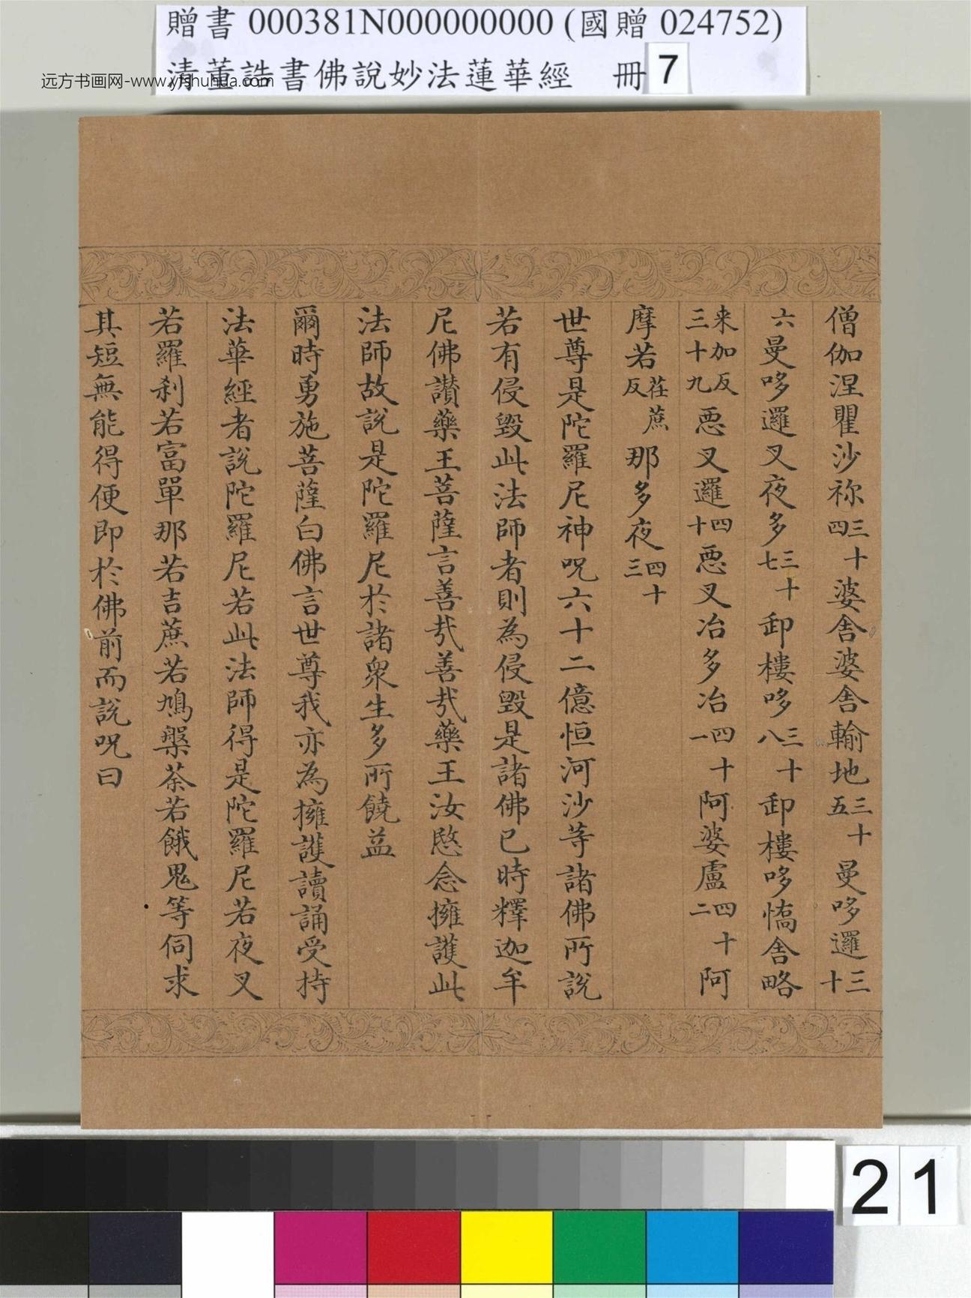 贈書 000381N000000000 (國贈 024752)
清董誥書佛說妙法蓮華經 冊 7
远方书画网-www.yfshuhua.com
僧伽涅瞿沙祢三十四婆舍婆舍輸地三十五曼哆邏三十
六曼哆邏叉夜多三十七卸樓哆三十八卸樓哆憍舍略
来加反三十九惡叉邏四十惡叉冶多冶四十一阿婆盧四十二阿
摩若荏蔗反那多夜四十三
世尊是陀羅尼神呪六十二億恒河沙等諸佛所說
若有侵毀此法師者則為侵毀是諸佛已時釋迦牟
尼佛讃藥王菩薩言善哉善哉藥王汝愍念擁護此
法師故說是陀羅尼於諸衆生多所饒益
爾時勇施菩薩白佛言世尊我亦為擁護讀誦受持
法華經者說陀羅尼若此法師得是陀羅尼若夜叉
若羅刹若富單那若吉蔗若鳩槃荼若餓鬼等伺求
其短無能得便即於佛前而說呪曰
21